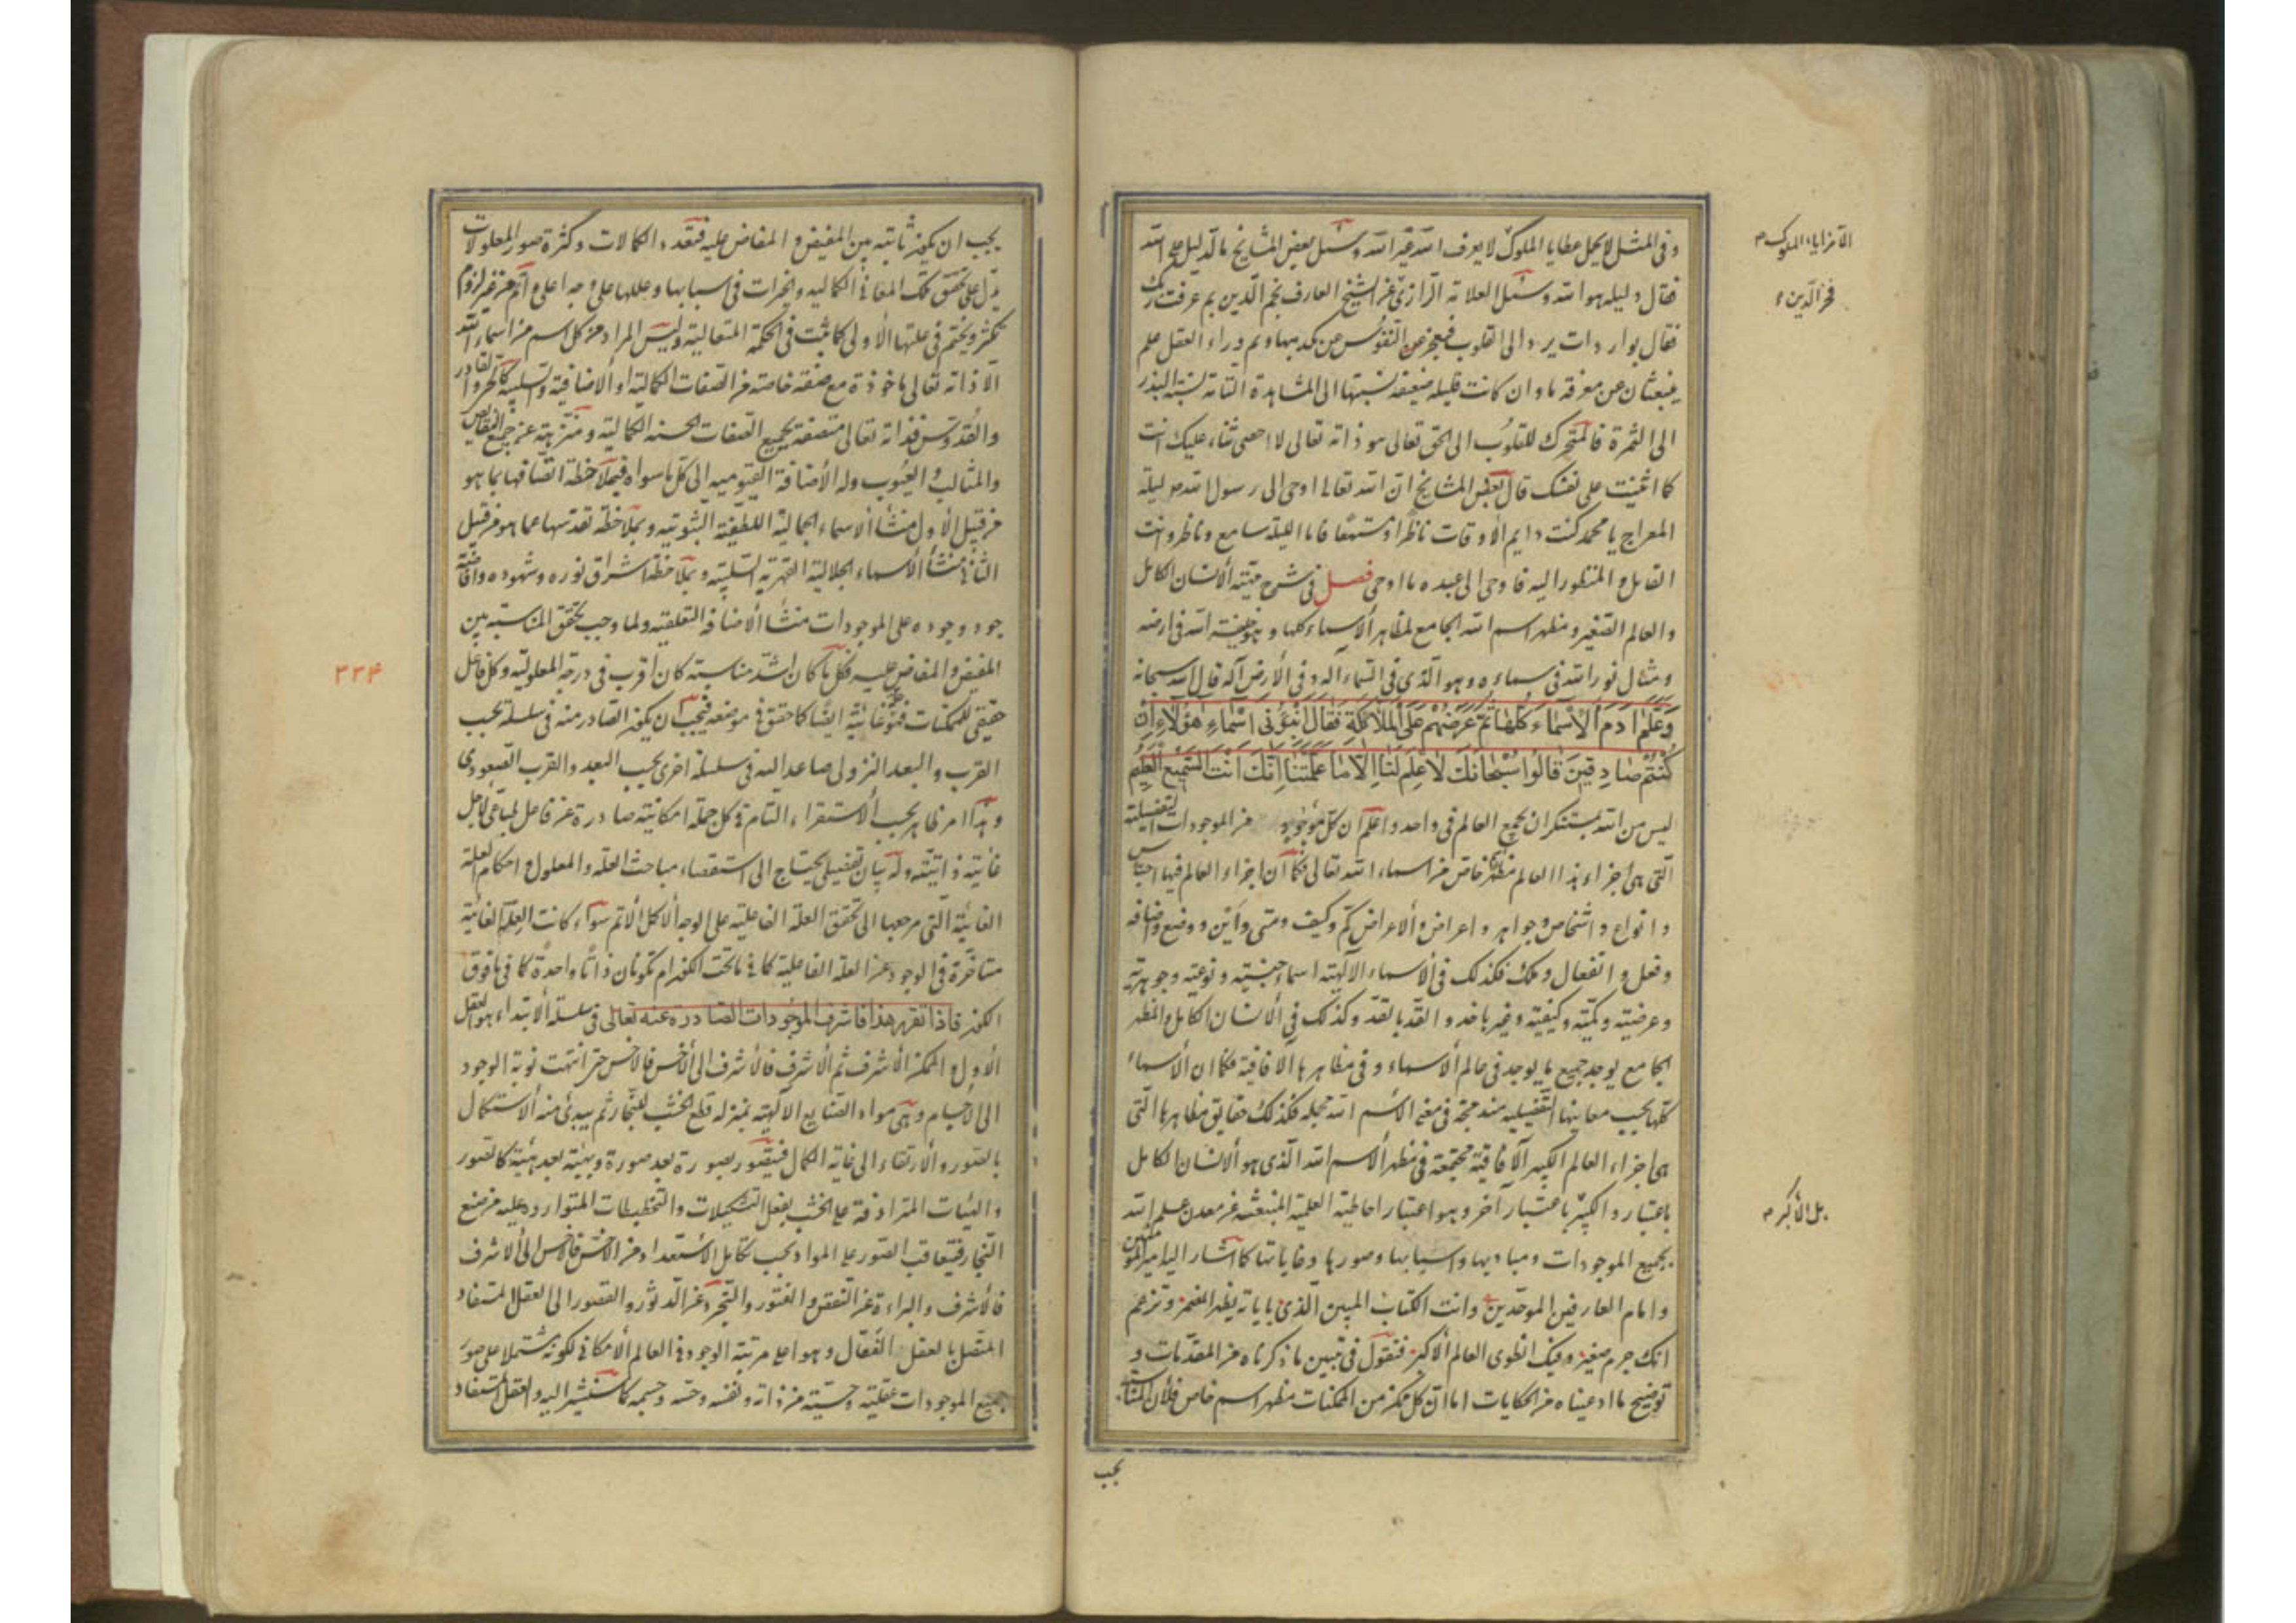 وفى المثل لا يحمل عطايا الملوك لا يعرف الله غير الله وسئل بعض المشايخ ما الدليل على الله
فقال دليله هو الله وسئل العلامة الرازى عن الشيخ العارف نجم الدين بم عرفت ربك
فقال بواردات يرد الى القلوب فيعجز عن النفوس عن تكذيبها ونم وراء العقل علم
ينبعثان عن معرفة ما وان كانت قليله ضعيفه نسبتها الى المشاهدة التامة نسبة البذر
الى الثمرة فالمتحرك للقلوب الى الحق تعالى هو ذاته تعالى لا احصى ثناء عليك انت
كما اثنيت على نفسك قال بعض المشايخ ان الله تعالى اوحى الى رسول الله ص ليلة
المعراج يا محمد كنت دايم الاوقات ناظرا ومستمعا فانا الليلة سامع وناظر وانت
القايل والمنظور اليه فاوحى الى عبده ما اوحى فصل فى شرح ميته الانسان الكامل
والعالم الصغير ومظهر اسم الله الجامع لمظاهر الاسماء كلها وهو خليفة الله فى ارضه
ومثال نور الله فى سماءه وهو الذى فى السماء اله وفى الارض اله قال الله سبحانه
وَعَلَّمَ آدَمَ الْأَسْمَاءَ كُلَّهَا ثُمَّ عَرَضَهُمْ عَلَى الْمَلَائِكَةِ فَقَالَ أَنْبِؤُنِى أَسْمَاءِ هَؤُلَاءِ إِنْ
كُنْتُمْ صَادِقِينَ قَالُوا سُبْحَانَكَ لَا عِلْمَ لَنَا إِلَّا مَا عَلَّمْتَنَا إِنَّكَ أَنْتَ السَّمِيعُ الْعَلِيمُ
ليس من الله بمستنكر ان يجمع العالم فى واحد واعلم ان كل موجود من الموجودات التفصيلية
التى هى اجزاء هذا العالم مظهر خاص من اسماء الله تعالى فكما ان اجزاء العالم فيها اجناس
وانواع واشخاص وجواهر واعراض والاعراض كم وكيف ومتى واين ووضع واضافه
وفعل وانفعال وملك فكذلك فى الاسماء الالهية اسماء جنسيه ونوعيه وجوهريه
وعرضيته وكميته وكيفيته وغيرها خذو القذ بالقذ وكذلك فى الانسان الكامل والمظهر
الجامع يوجد جميع ما يوجد فى عالم الاسماء وفى مظاهرها الافاقية فكما ان الاسماء
كلها بحسب معاينها التفصيليه مندمجة فى معنى الاسم الله مجمله فكذلك حقايق مظاهرها التى
هى اجزاء العالم الكبير الافاقية مجتمعة فى مظهر الاسم الله الذى هو الانسان الكامل
باعتبار والكبير باعتبار آخر وهو اعتبار احاطيه العلميه المنبعثه عن معدن علم الله
بجميع الموجودات ومباديها واسبابها وصورها وغاياتها كما اشار اليه امير المؤمنين
وامام العارفين الموحدين وانت الكتاب المبين الذى باياته يظهر المضمر وتزعم
انك جرم صغير وفيك انطوى العالم الاكبر فنقول فى تبيين ما ذكرناه من المقدمات و
توضيح ما ادعيناه من الحكايات اما ان كل ممكن من الممكنات مظهر اسم خاص فلان المناسبة
يجب
الا مزايا الملوك
فخر الدين
بل الاكبر
يجب ان يكون ثابته بين المفيض والمفاض عليه فتعدد الكمالات وكثرة صور المعلولات
يدل على تحقق تلك المعانى الكماليه والخيرات فى اسبابها وعللها على وجه اعلى واتم من غير لزوم
تكثر ويختم فى علتها الاولى كما ثبت فى الحكمة المتعالية وليس المراد من كل اسم من اسماء الله
الا ذاته تعالى ماخوذة مع صفة خاصة من الصفات الكمالية او الاضافية والسلبية كالحى والقادر
والقدوس فذاته تعالى متصفة بجميع الصفات الحسنه الكمالية ومنزهة عن جميع النقايص
والمثالب والعيوب وله الاضافة القيوميه الى كل ما سواه فبملاحظة اتصافها بما هو
من قبيل الاول منشأ الاسماء الجمالية اللطيفة الثبوتيه وبملاحظة تقدسها عما هو من قبيل
الثانى منشأ الاسماء الجلالية القهرية السلبيه وبملاحظة اشراق نوره وشهوده وافاضته
جود وجوده على الموجودات منشأ الاضافة التعلقيه ولما وجب تحقق المناسبة بين
المفيض والمفاض عليه فكل ما كان اشد مناسبة كان اقرب فى درجة المعلولية وكل فاعل
حقيقى للممكنات فهو غائية ايضا كما حقق فى موضعه فيجب ان يكون الصادر منه فى سلسلة بحسب
القرب والبعد النزولى صاعدا اليه فى سلسلة اخرى بحسب البعد والقرب الصعودى
وهذا امر ظاهر بحسب الاستقراء التام فى كل جملة امكانية صادرة عن فاعل لاجل
غائية ذاتيته وله بيان تفصيلى يحتاج الى استقصاء مباحث العله والمعلول واحكام العلة
الغائية التى مرجعها الى تحقق العلة الفاعلية على الوجه الاكمل الاتم سواء كانت العلة الغائية
متاخرة فى الوجود عن العلة الفاعلية كما فى ما تحت الكون ام تكونان ذاتا واحدة كما فى ما فوق
الكون فاذا تقرر هذا فاشرف الموجودات الصادرة عنه تعالى فى سلسلة الابتداء هو العقل
الاول والممكن الاشرف ثم الاشرف فالاشرف الى الاخس فالاخس حتى انتهت نوبة الوجود
الى الاجسام وهى مواد الصنايع الالهيه بمنزله قطع الخشب للنجار ثم يبدئ منه الاستكمال
بالصور والارتقاء الى غاية الكمال فيتصور بصورة بعد صورة وهيئة بعد هيئة كالصور
والهيئات المترادفة على الخشب بفعل التشكيلات والتخطيطات المتوارده عليه من صنع
النجار فيتعاقب الصور على المواد بحسب تكامل الاستعداد من الاخس فالاخس الى الاشرف
فالاشرف والبراءة عن النقص والفتور والتجرد عن الدثور والقصور الى العقل المستفاد
المتصل بالعقل الفعال وهو اعلى مرتبة الوجود فى العالم الامكانى لكونه مشتملا على صور
جميع الموجودات عقلية وحسية من ذاته ونفسه وحسه وجسمه كما سنشير اليه والعقل المستفاد
٢٣٤